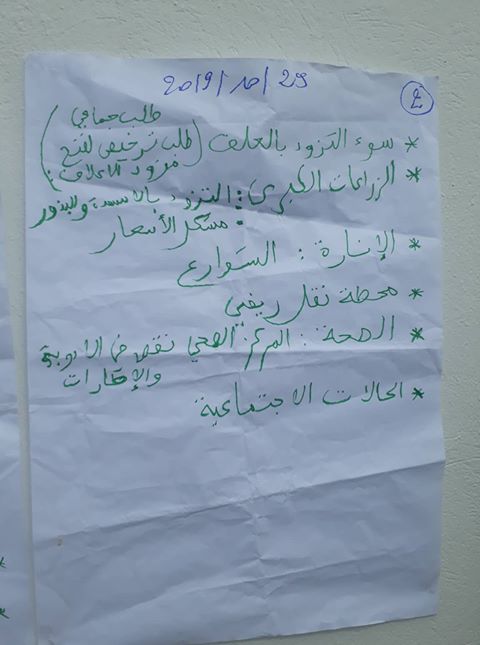 2
29/10/2019
طلب جماعي
* سوء التزود بالعلف (طلب ترخيص لفتح
مزود الأعلاف)
* الزراعات الكبرى: التزود بالأسمدة والبذور
: مشكل الأسعار
* الإنارة: الشوارع
* محطة نقل ريفي
* الصحة: المركز الصحي نقص في الأدوية
والإطارات
* الحالات الاجتماعية